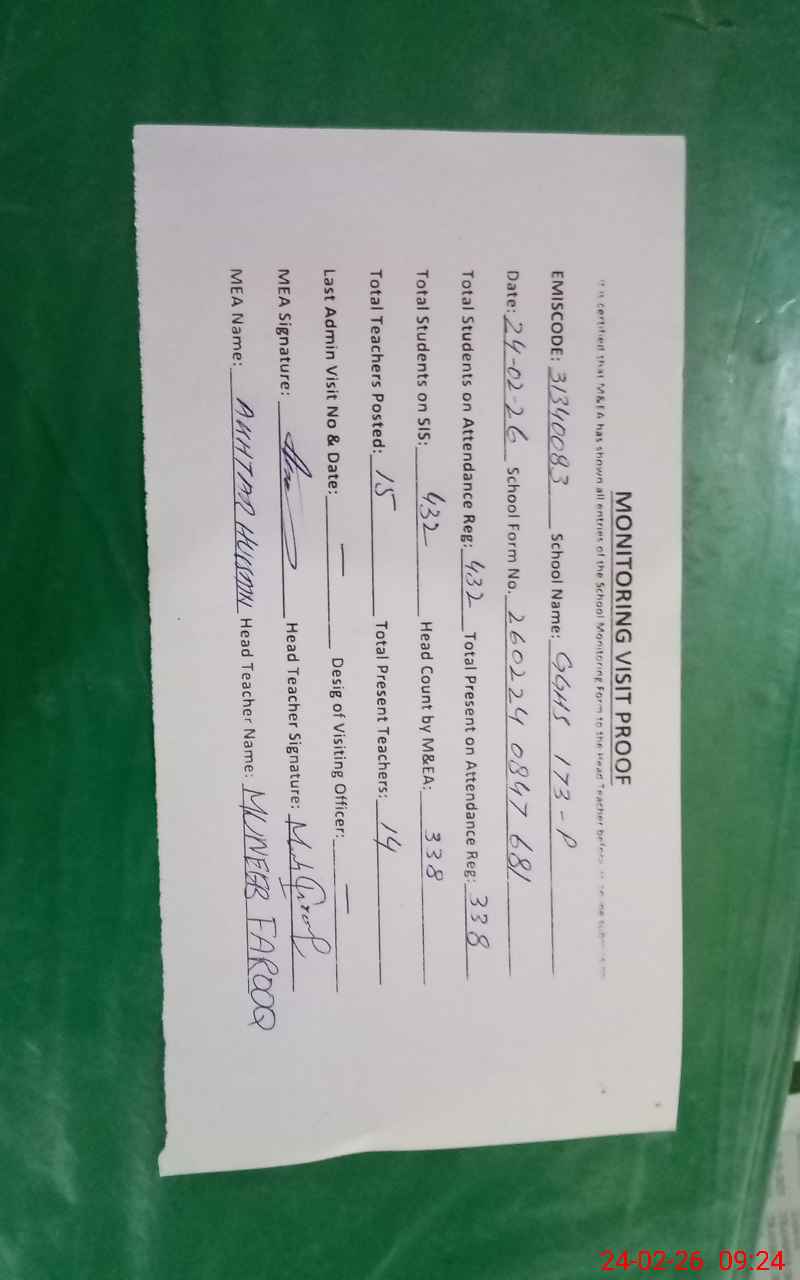 MONITORING VISIT PROOF
It is certified that M&EA has shown all entries of the School Monitoring Form to the Head Teacher before
EMISCODE: 31340083 School Name: GGHS 173-P
Date: 24-02-26 School Form No. 260224 0847 681
Total Students on Attendance Reg: 432 Total Present on Attendance Reg: 338
Total Students on SIS: 432 Head Count by M&EA: 338
Total Teachers Posted: 15 Total Present Teachers: 14
Last Admin Visit No & Date: — Desig of Visiting Officer: —
MEA Signature: Head Teacher Signature:
MEA Name: AKHTAR HUSSAIN Head Teacher Name: MUNEEB FAROOQ
24-02-26 09:24